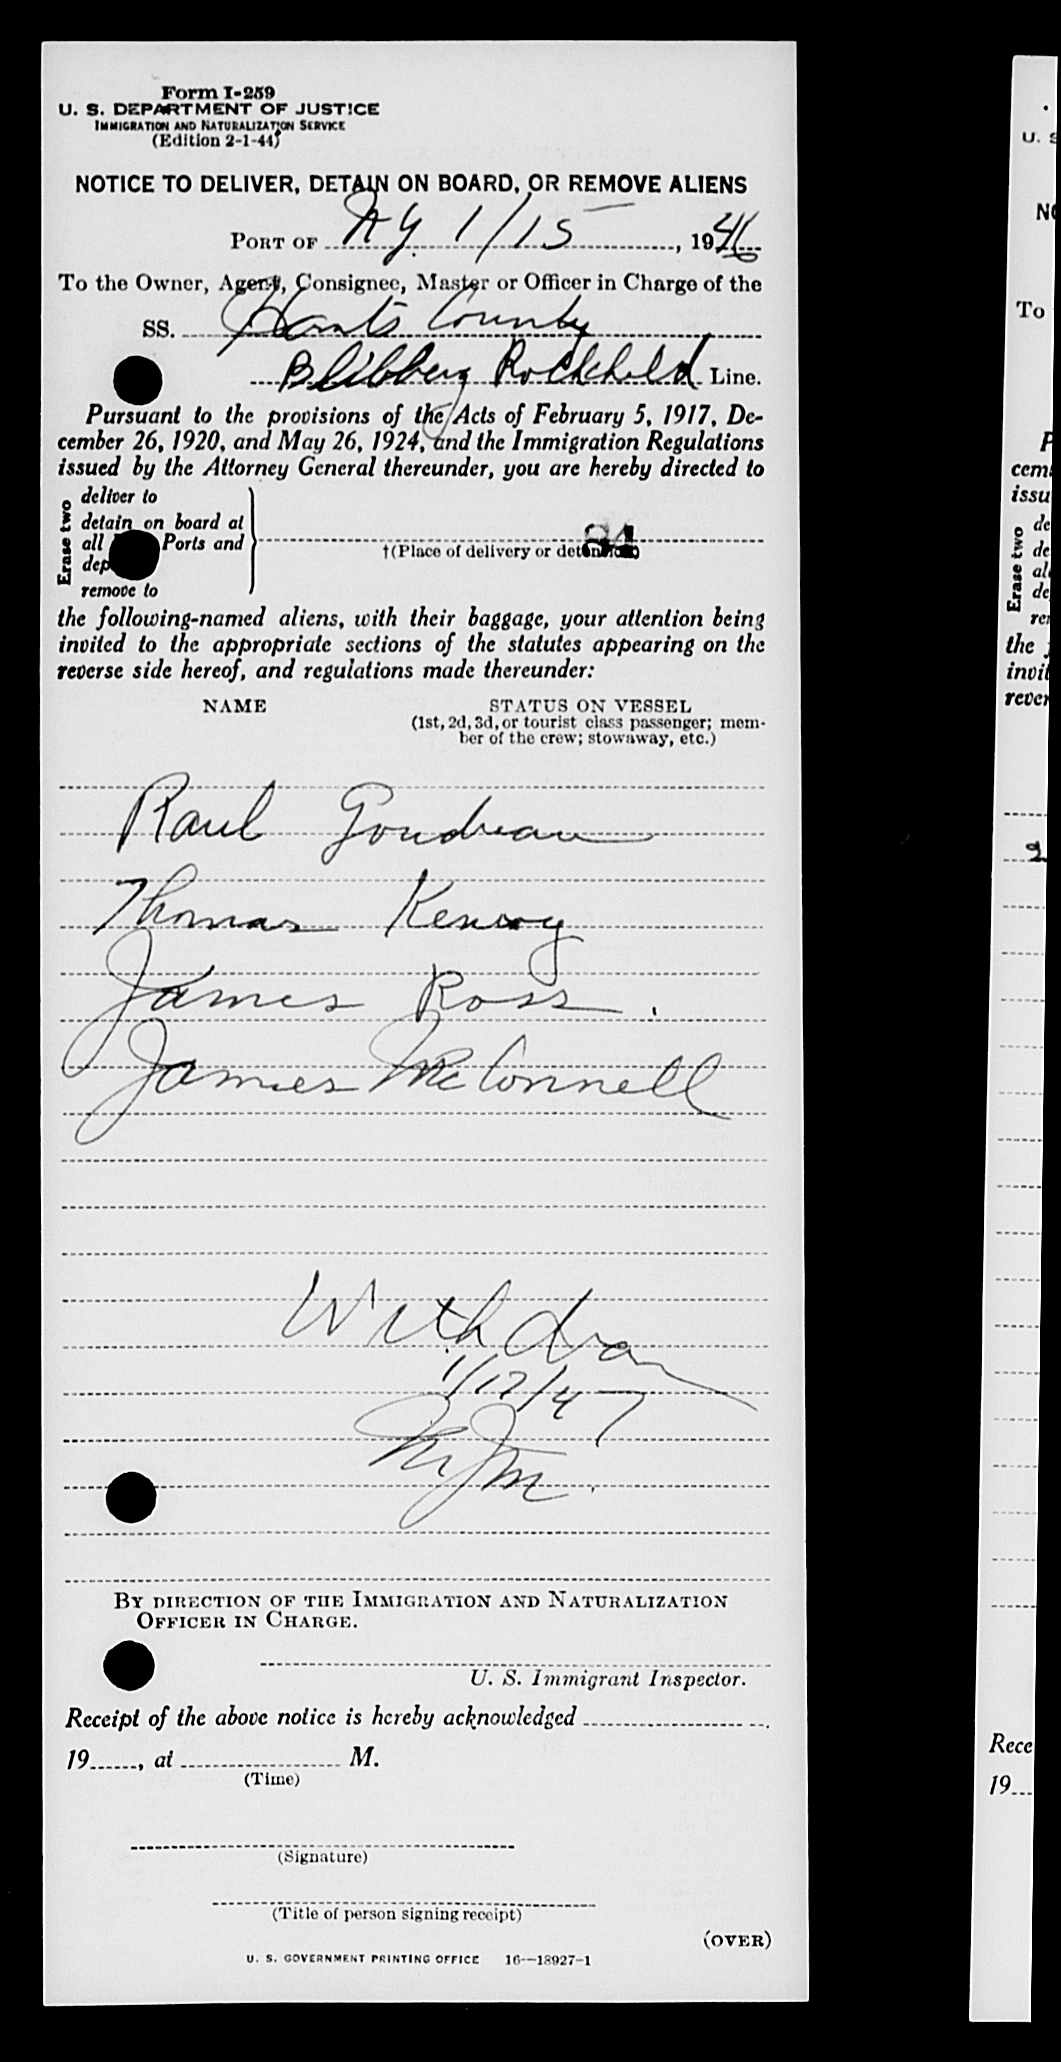 Form I-259
U. S. DEPARTMENT OF JUSTICE
IMMIGRATION AND NATURALIZATION SERVICE
(Edition 2-1-44)
NOTICE TO DELIVER, DETAIN ON BOARD, OR REMOVE ALIENS
PORT OF N.Y. 1/15, 1946
To the Owner, Agent, Consignee, Master or Officer in Charge of the
SS. Hants County
Rothchild Line.
Pursuant to the provisions of the Acts of February 5, 1917, De-
cember 26, 1920, and May 26, 1924, and the Immigration Regulations
issued by the Attorney General thereunder, you are hereby directed to
Erase two
deliver to
detain on board at
all Ports and
dep
remove to
84
†(Place of delivery or detention)
the following-named aliens, with their baggage, your attention being
invited to the appropriate sections of the statutes appearing on the
reverse side hereof, and regulations made thereunder:
NAME STATUS ON VESSEL
(1st, 2d, 3d, or tourist class passenger; mem-
ber of the crew; stowaway, etc.)
Raul Goudreau
Thomas
James Ross.
James McConnell
Withdran
1/17/47
BY DIRECTION OF THE IMMIGRATION AND NATURALIZATION
OFFICER IN CHARGE.
U. S. Immigrant Inspector.
Receipt of the above notice is hereby acknowledged
19, at M.
(Time)
(Signature)
(Title of person signing receipt)
(OVER)
U. S. GOVERNMENT PRINTING OFFICE 16—18927-1
U. S
NO
To
P
cem
issu
Erase two
de
de
al
de
re
the
invit
rever
2
Rece
19